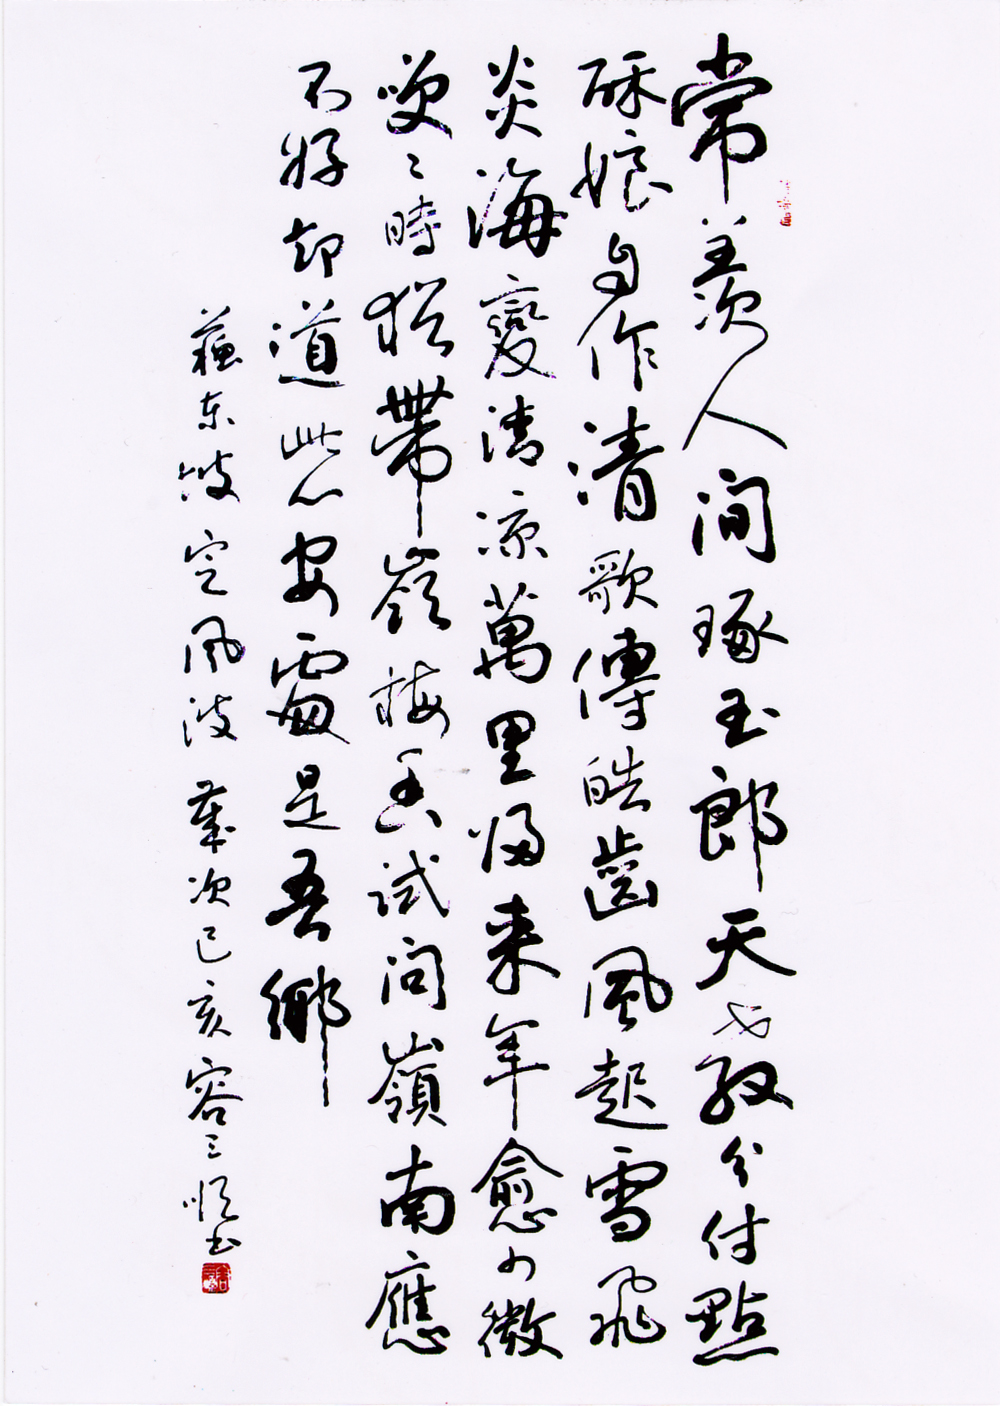 常羨人间琢玉郎天应教分付點
酥娘自作清歌傳皓齒風起雪飛
炎海變清凉萬里归来年愈少微
笑笑時猶帶嶺梅香试问嶺南應
不好却道此心安處是吾鄉
蘇东坡定风波 歲次己亥容三順书